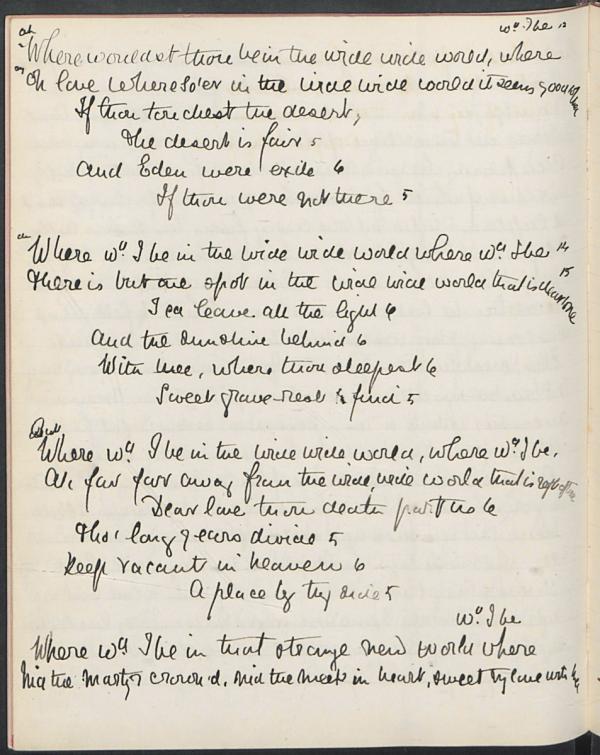 wd. I be 13
ah
Where wouldst thou be in the wide wide world, where
Oh love where so'er in the wide wide world it seems good to thee
If thou touchest the desert,
The desert is fair 5
And Eden were exile 6
If thou were not there 5
Where wd. I be in the wide wide world where wd. I be 14
There is but one spot in the wide wide world that is dear to me 15
I cd leave all the light 6
And the sunshine behind 6
With thee, where thou sleepest 6
Sweet grave-rest to find 5
Where wd. I be in the wide wide world, where wd. I be,
Ah far far away from the wide, wide world that is
Dear love thou death part us 6
Tho' long years divide 5
Keep vacant in heaven 6
A place by thy side 5
wd. I be
Where wd. I be in that strange new world where
Mid the martyr crown'd, mid the meek in heart, sweet my love with thee